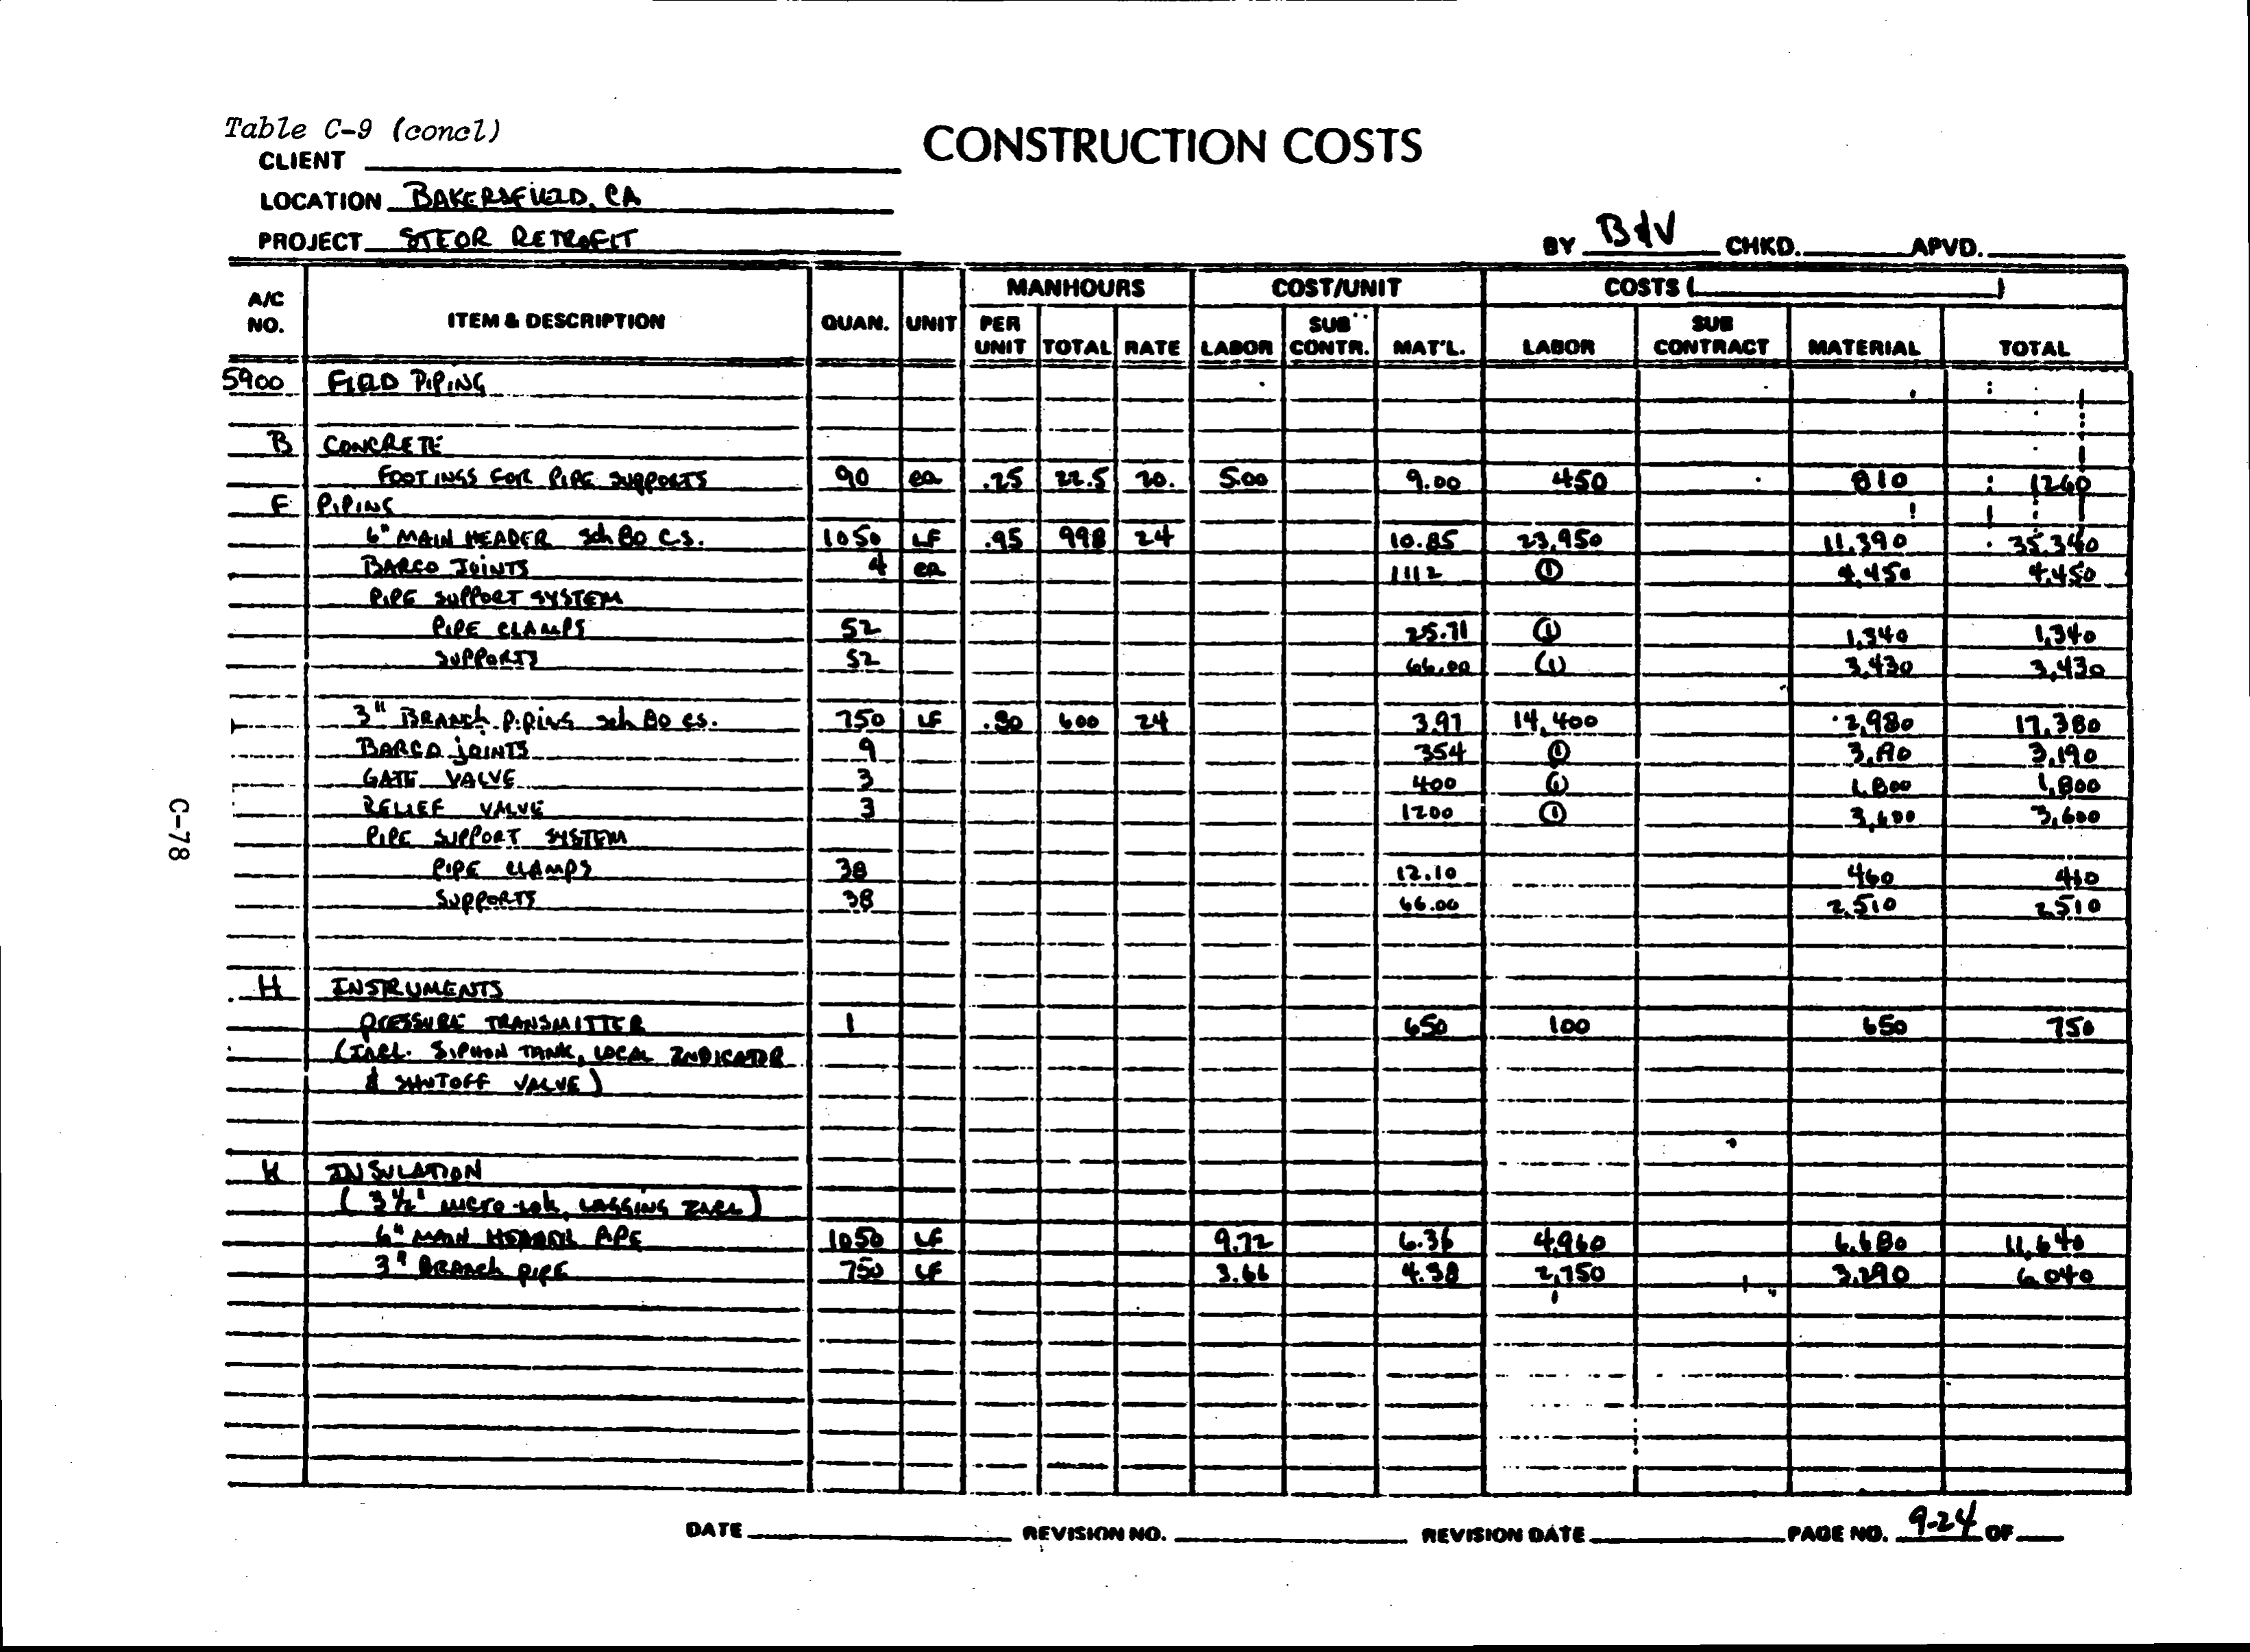 Table C-9 (concl)
CONSTRUCTION COSTS
CLIENT
LOCATION BAKERSFIELD, CA
PROJECT STEOR RETROFIT
BY B&V CHKD. APVD.
A/C NO. ITEM & DESCRIPTION QUAN. UNIT MANHOURS PER UNIT TOTAL RATE COST/UNIT LABOR SUB CONTR. MAT'L. COSTS ( ) LABOR SUB CONTRACT MATERIAL TOTAL
5900 FIELD PIPING
B CONCRETE
FOOTINGS FOR PIPE SUPPORTS 90 ea .25 22.5 20. 5.00 9.00 450 810 1260
F PIPING
6" MAIN HEADER sch 80 C.S. 1050 LF .95 998 24 10.85 23,950 11,390 35,340
BARCO JOINTS 4 ea 1112 (1) 4,450 4,450
PIPE SUPPORT SYSTEM
PIPE CLAMPS 52 25.71 (1) 1,340 1,340
SUPPORTS 52 66.00 (1) 3,430 3,430
3" BRANCH PIPING sch 80 cs. 750 LF .80 600 24 3.97 14,400 2,980 17,380
BARCO JOINTS 9 354 (1) 3,190 3,190
GATE VALVE 3 (1) 1,800 1,800
RELIEF VALVE 3 1200 (1) 3,600 3,600
PIPE SUPPORT SYSTEM
PIPE CLAMPS 38 12.10 460 460
SUPPORTS 38 66.00 2,510 2,510
H INSTRUMENTS
PRESSURE TRANSMITTER 1 650 100 650 750
(INCL. SIPHON TANK, LOCAL INDICATOR
& SHUTOFF VALVE)
K INSULATION
(3 1/2" MICRO-LOK, LAGGING INCL)
6" MAIN HEADER PIPE 1050 LF 6.36 4,960 6,680 11,640
3" BRANCH PIPE 750 LF 3.66 4.38 2,750 3,290 6,040
DATE REVISION NO. REVISION DATE PAGE NO. 9-24 OF
C-78